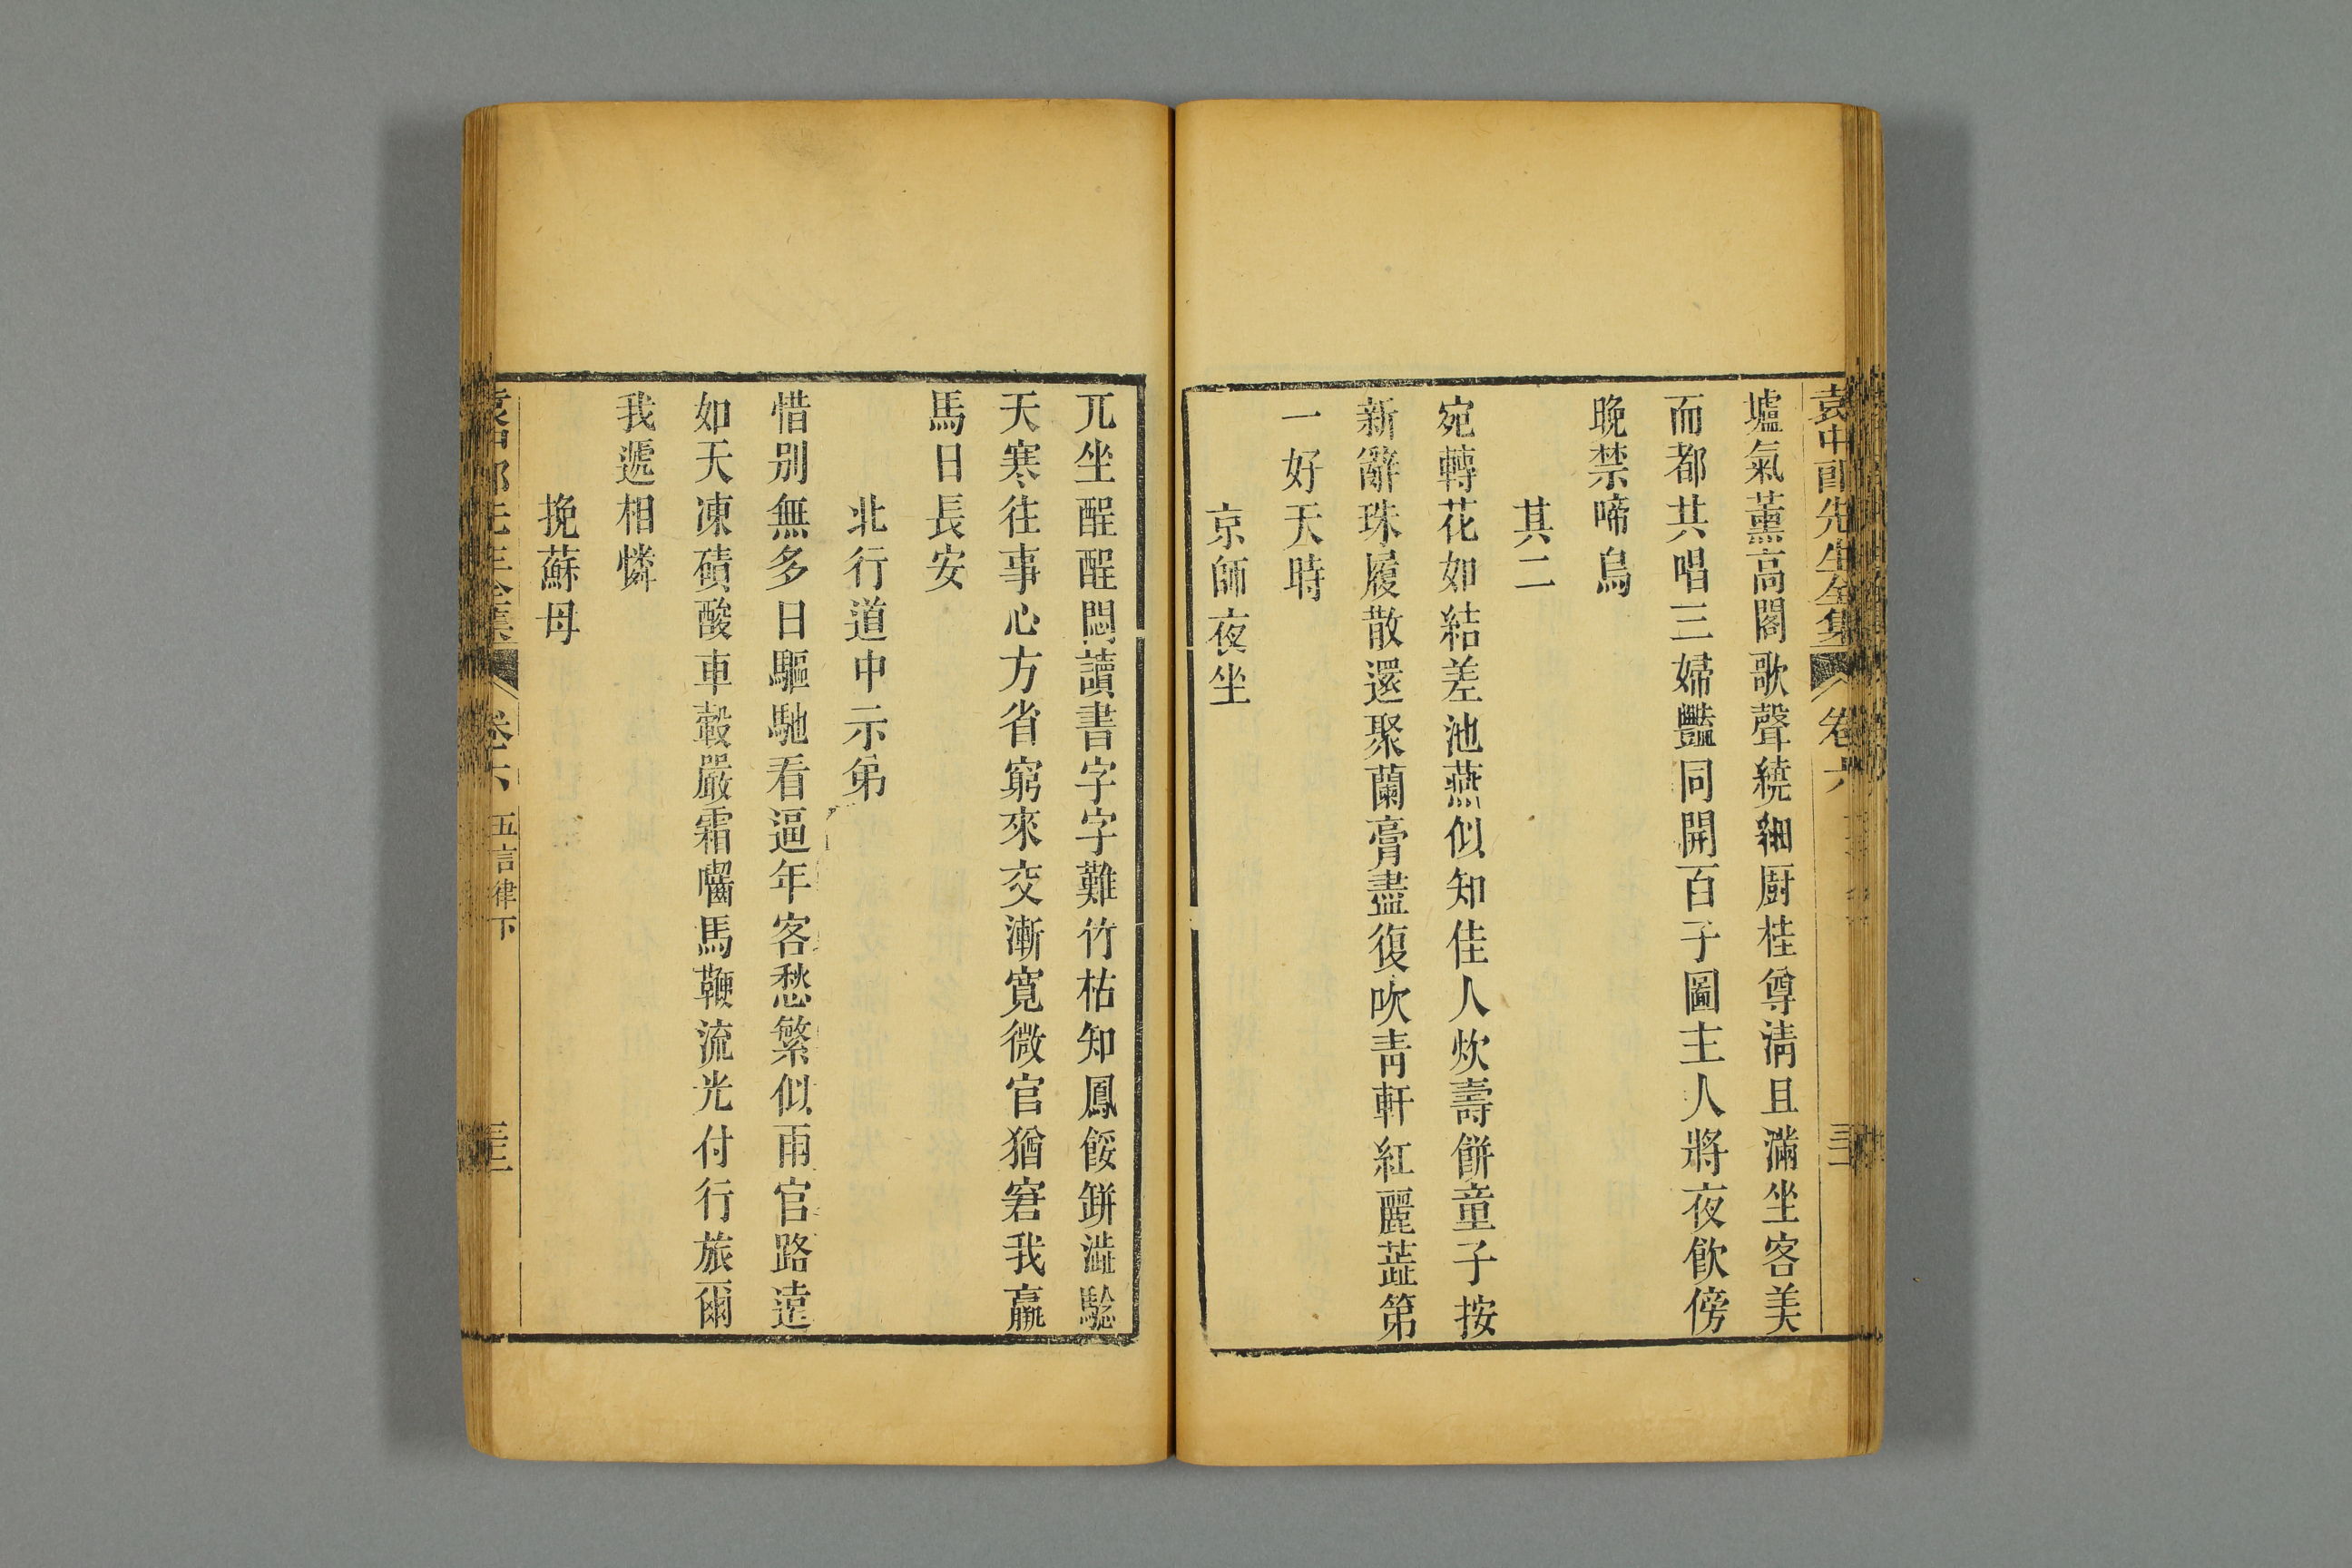 袁中郎先生全集 卷六
壚氣薰高閣歌聲繞細厨桂尊淸且滿坐客美
而都共唱三婦豔同開百子圖主人將夜飲傍
晚禁啼烏
其二
宛轉花如結差池燕似知佳人炊壽餅童子按
新辭珠履散還聚蘭膏盡復吹靑軒紅麗蕋第
一好天時
京師夜坐
兀坐醒醒悶讀書字字難竹枯知鳳餒缾澁騐
天寒往事心方省窮來交漸寛微官猶窘我羸
馬日長安
北行道中示弟
惜別無多日驅馳看逼年客愁繁似雨官路遠
如天凍磧酸車轂嚴霜囓馬鞭流光付行旅爾
我遞相憐
挽蘇母
袁中郎先生全集 卷六 五言律下